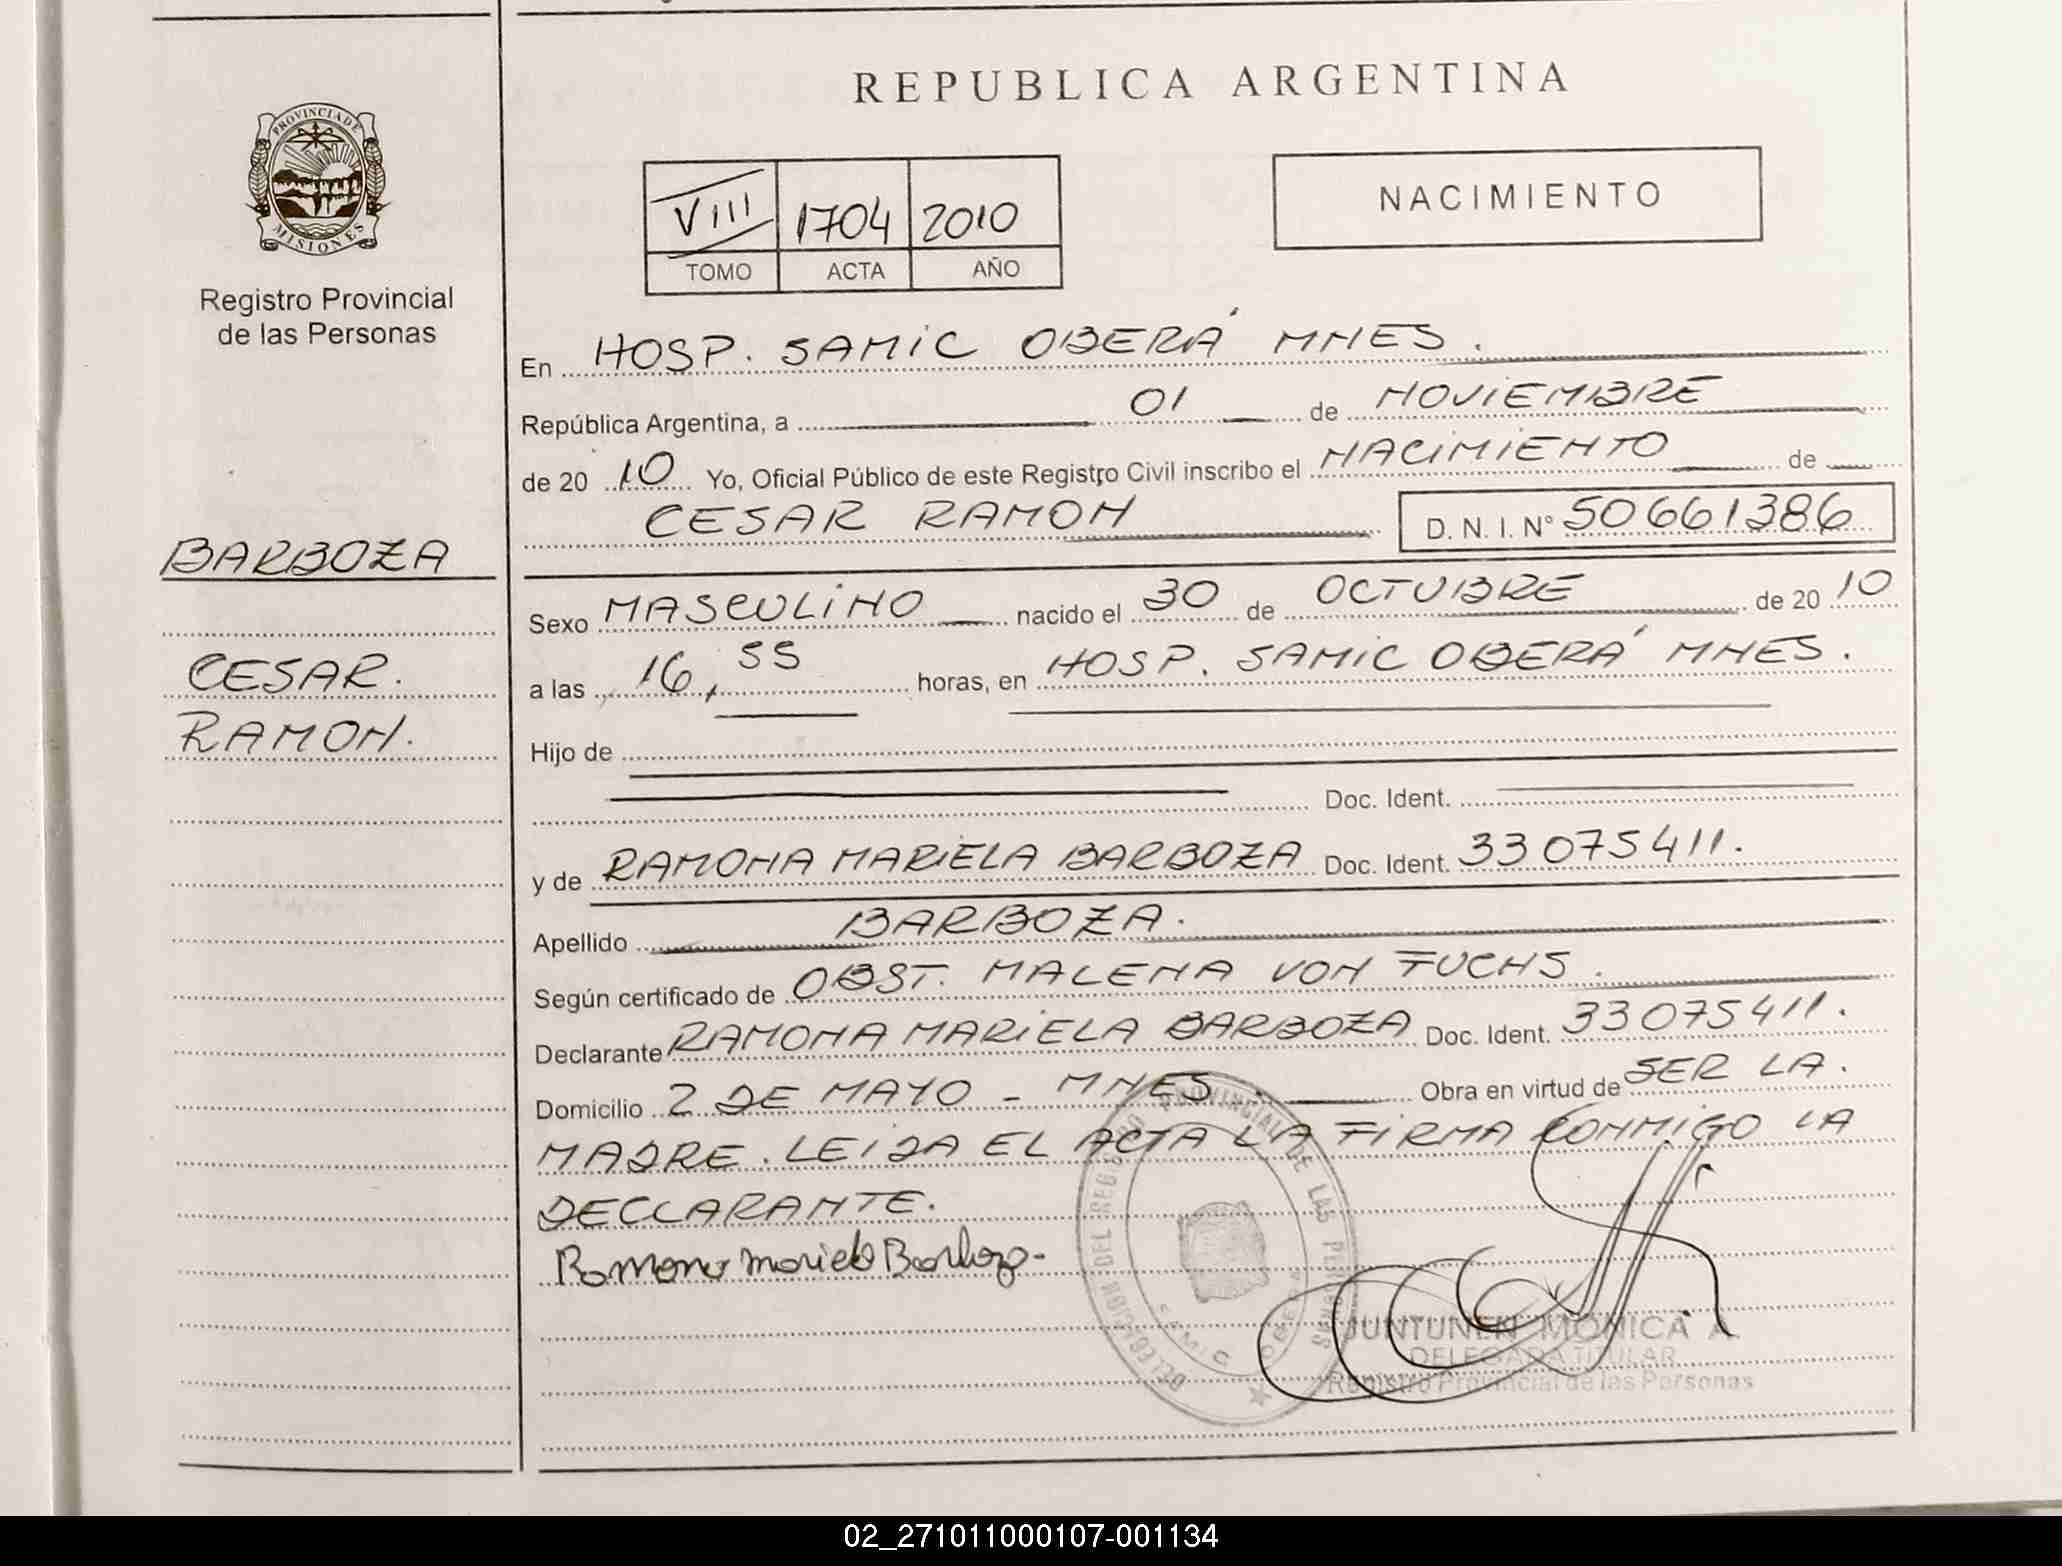 REPUBLICA ARGENTINA
PROVINCIA DE
MISIONES
Registro Provincial
de las Personas
VIII 1704 2010
TOMO ACTA AÑO
NACIMIENTO
En HOSP. SAMIC OBERÁ MNES.
República Argentina, a 01 de NOVIEMBRE
de 20 10 Yo, Oficial Público de este Registro Civil inscribo el NACIMIENTO de
CESAR RAMON D. N. I. N° 50661386
BARBOZA
CESAR.
RAMON.
Sexo MASCULINO nacido el 30 de OCTUBRE de 20 10
a las 16,55 horas, en HOSP. SAMIC OBERÁ MNES.
Hijo de
Doc. Ident.
y de RAMONA MARIELA BARBOZA Doc. Ident. 33075411.
Apellido BARBOZA.
Según certificado de OBST. MALENA VON FUCHS.
Declarante RAMONA MARIELA BARBOZA Doc. Ident. 33075411.
Domicilio 2 DE MAYO - MNES. Obra en virtud de SER LA.
MADRE. LEIDA EL ACTA LA FIRMA CONMIGO LA
DECLARANTE.
Ramona Mariela Barboza-
DELEGACION DEL REGISTRO PROVINCIAL DE LAS PERSONAS
SAMIC OBERA
JUNTUNEN MONICA A.
DELEGADA TITULAR
Registro Provincial de las Personas
02_271011000107-001134